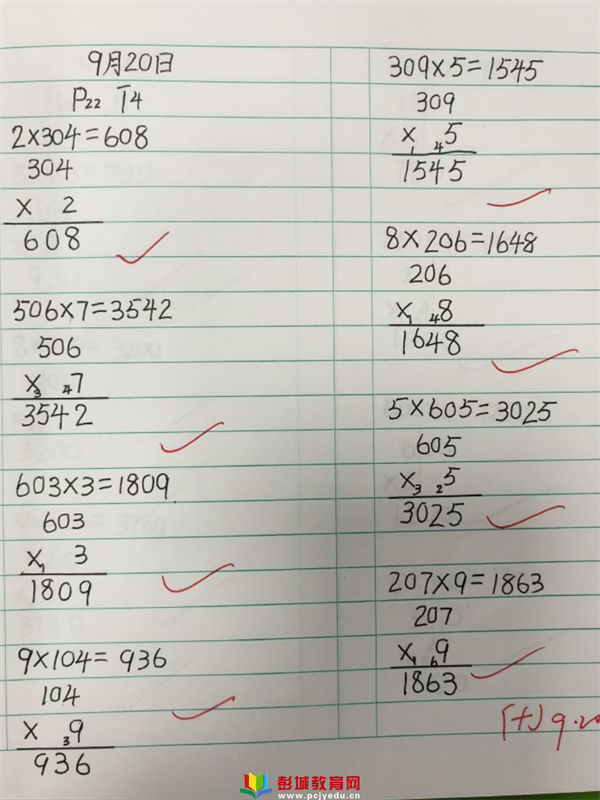 9月20日
P22 T4
2×304=608
304
× 2
608
506×7=3542
506
×3 47
3542
603×3=1809
603
×1 3
1809
9×104=936
104
× 39
936
309×5=1545
309
×1 45
1545
8×206=1648
206
×1 48
1648
5×605=3025
605
×3 25
3025
207×9=1863
207
×1 69
1863
9.20
彭城教育网
www.pcjyedu.cn